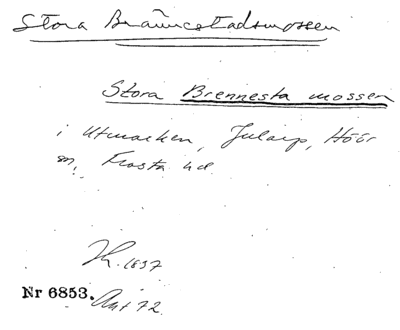 Stora Brännestadsmossen
Stora Brennesta mossen
i utmarken, Jularp, Höör
sn, Frosta hd.
1837
Nr 6853.
Ant 72.